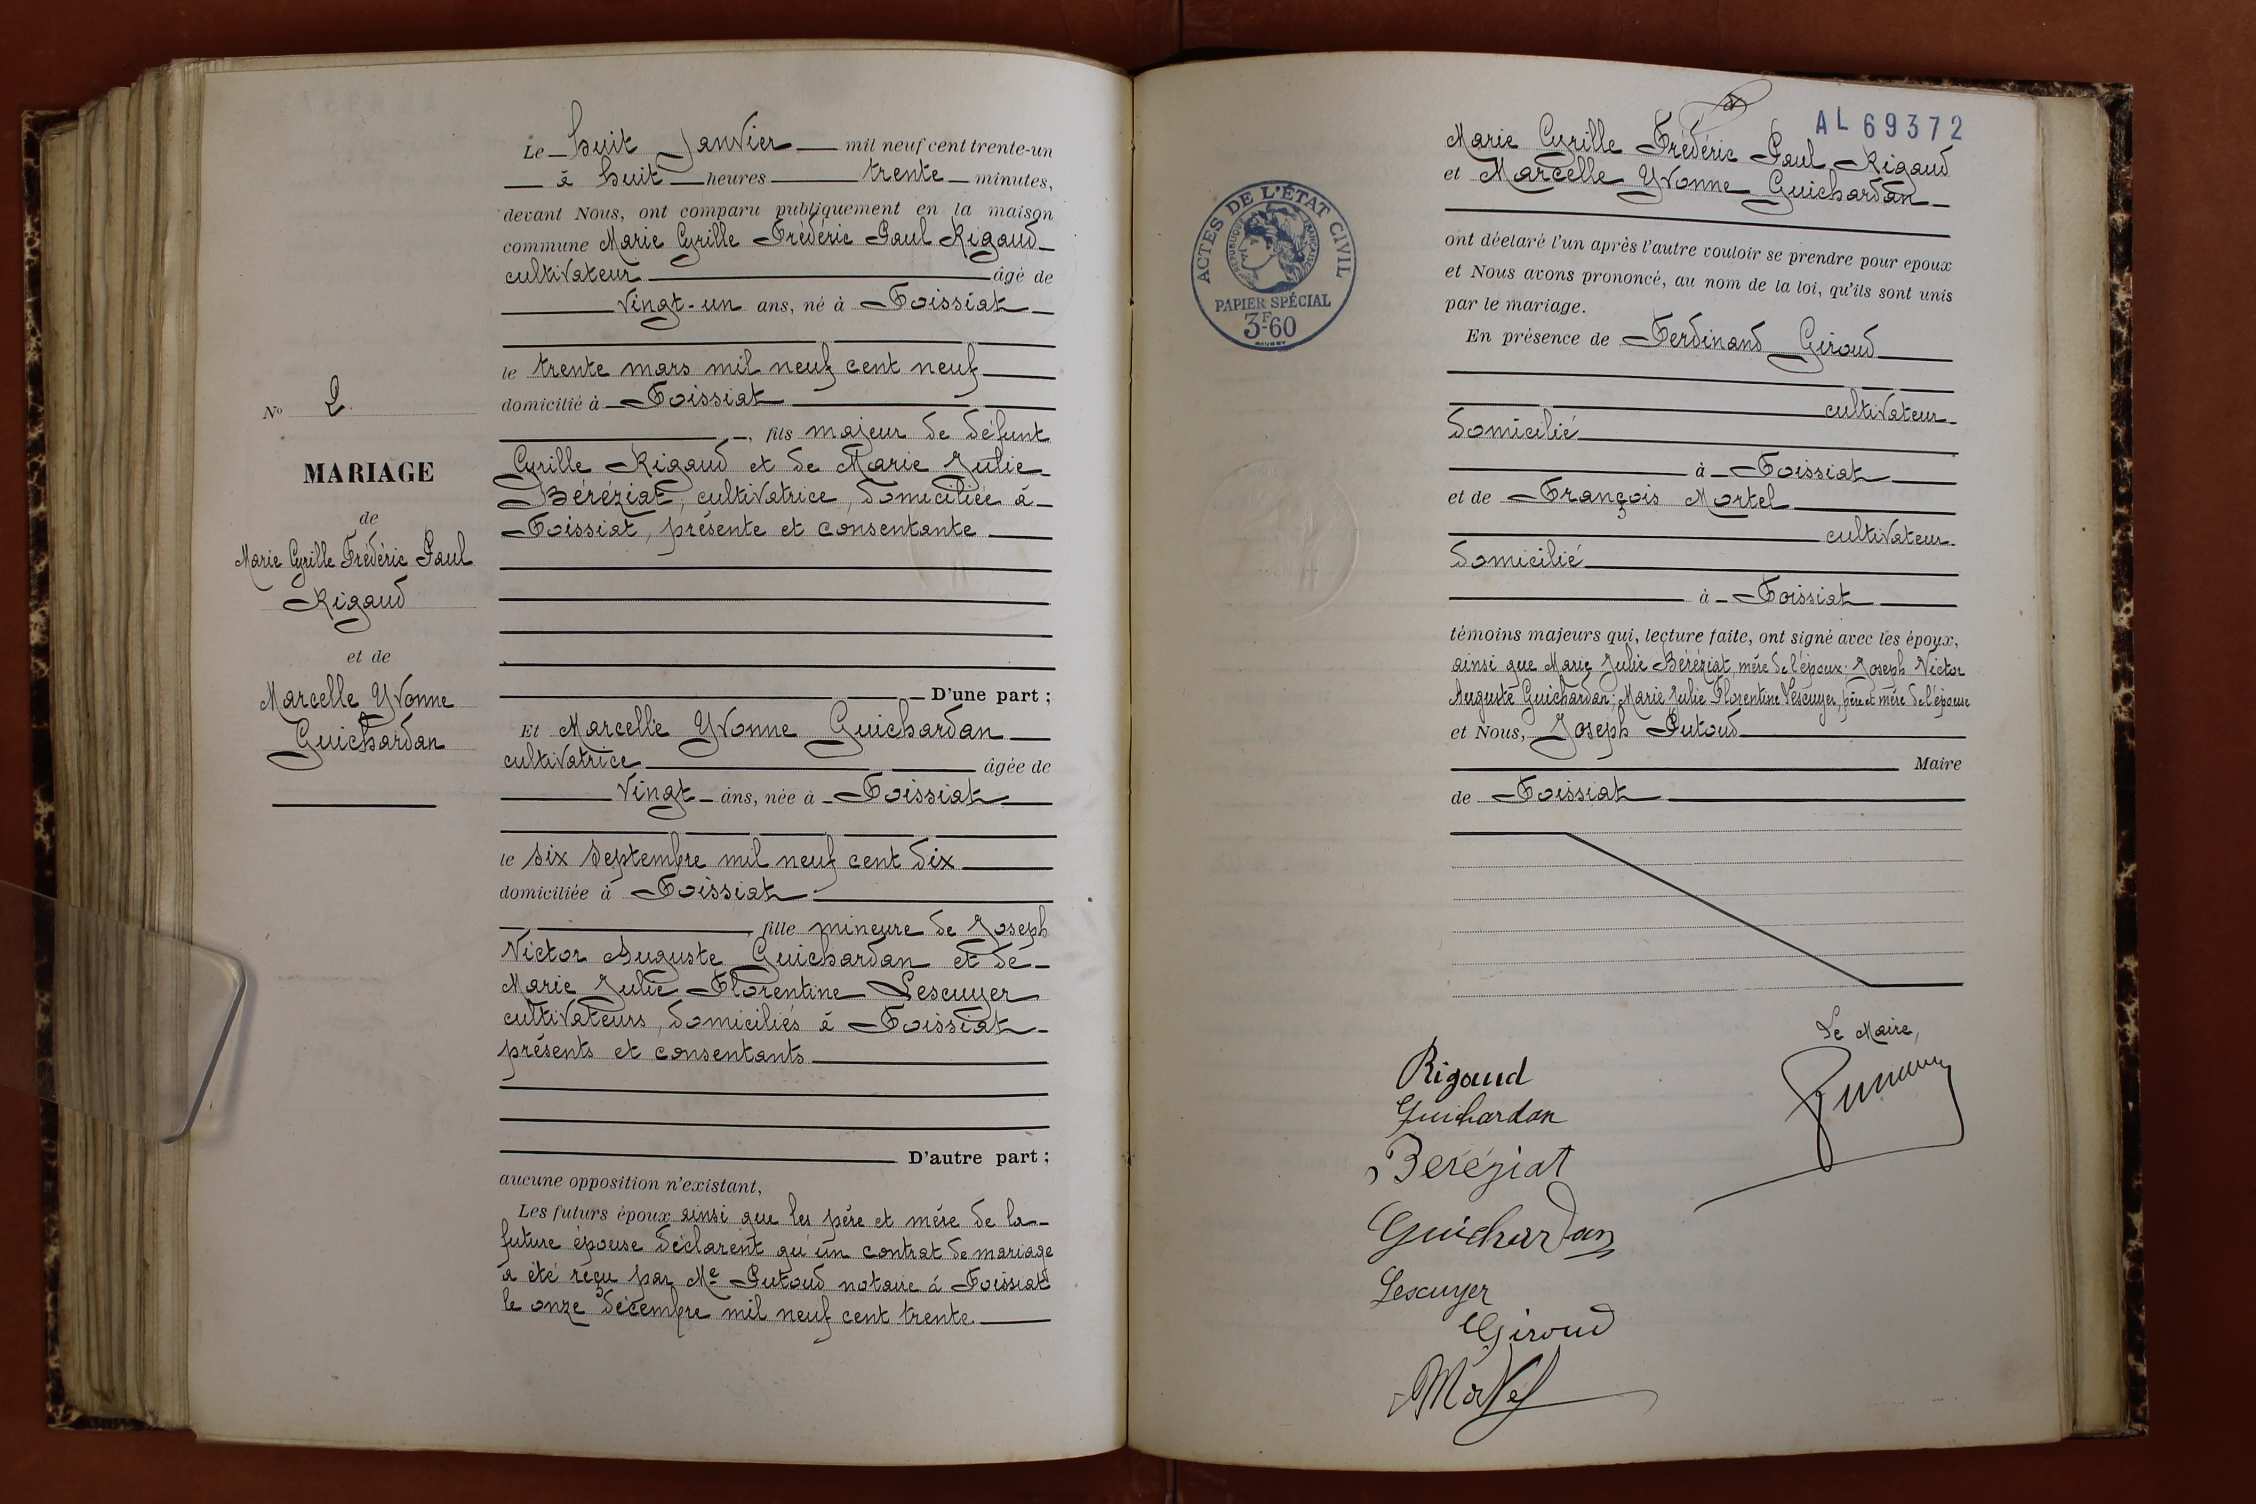 Le huit Janvier mil neuf cent trente-un
à huit heures trente minutes,
devant Nous, ont comparu publiquement en la maison
commune Marie Cyrille Frédéric Paul Rigaud
cultivateur âgé de
vingt-un ans, né à Foissiat
le trente mars mil neuf cent neuf
domicilié à Foissiat
, fils majeur de défunt
Cyrille Rigaud et de Marie Julie
Béréziat, cultivatrice, domiciliée à
Foissiat, présente et consentante
D'une part ;
Et Marcelle Yvonne Guichardan
cultivatrice âgée de
vingt ans, née à Foissiat
le six Septembre mil neuf cent dix
domiciliée à Foissiat
fille mineure de Joseph
Victor Auguste Guichardan et de
Marie Julie Florentine Lescuyer
cultivateurs, domiciliés à Foissiat
présents et consentants
D'autre part ;
aucune opposition n'existant,
Les futurs époux ainsi que les père et mère de la
future épouse déclarent qu'un contrat de mariage
a été reçu par Me Putoud notaire à Foissiat
le onze décembre mil neuf cent trente
No 2
MARIAGE
de
Marie Cyrille Frédéric Paul
Rigaud
et de
Marcelle Yvonne
Guichardan
AL 69372
ACTES DE L'ÉTAT CIVIL
RÉPUBLIQUE FRANÇAISE
PAPIER SPÉCIAL
3F-60
Marie Cyrille Frédéric Paul Rigaud
et Marcelle Yvonne Guichardan
ont déclaré l'un après l'autre vouloir se prendre pour epoux
et Nous avons prononcé, au nom de la loi, qu'ils sont unis
par le mariage.
En présence de Ferdinand Giroud
cultivateur
domicilié
à Foissiat
et de François Mortel
cultivateur
domicilié
à Foissiat
témoins majeurs qui, lecture faite, ont signé avec les époux,
ainsi que Marie Julie Béréziat, mère de l'époux; Joseph Victor
Auguste Guichardan; Marie Julie Florentine Lescuyer, père et mère de l'épouse
et Nous, Joseph Putoud
Maire
de Foissiat
Le Maire,
Rigaud
Guichardan
Béréziat
Guichardan
Lescuyer
Giroud
Mortel